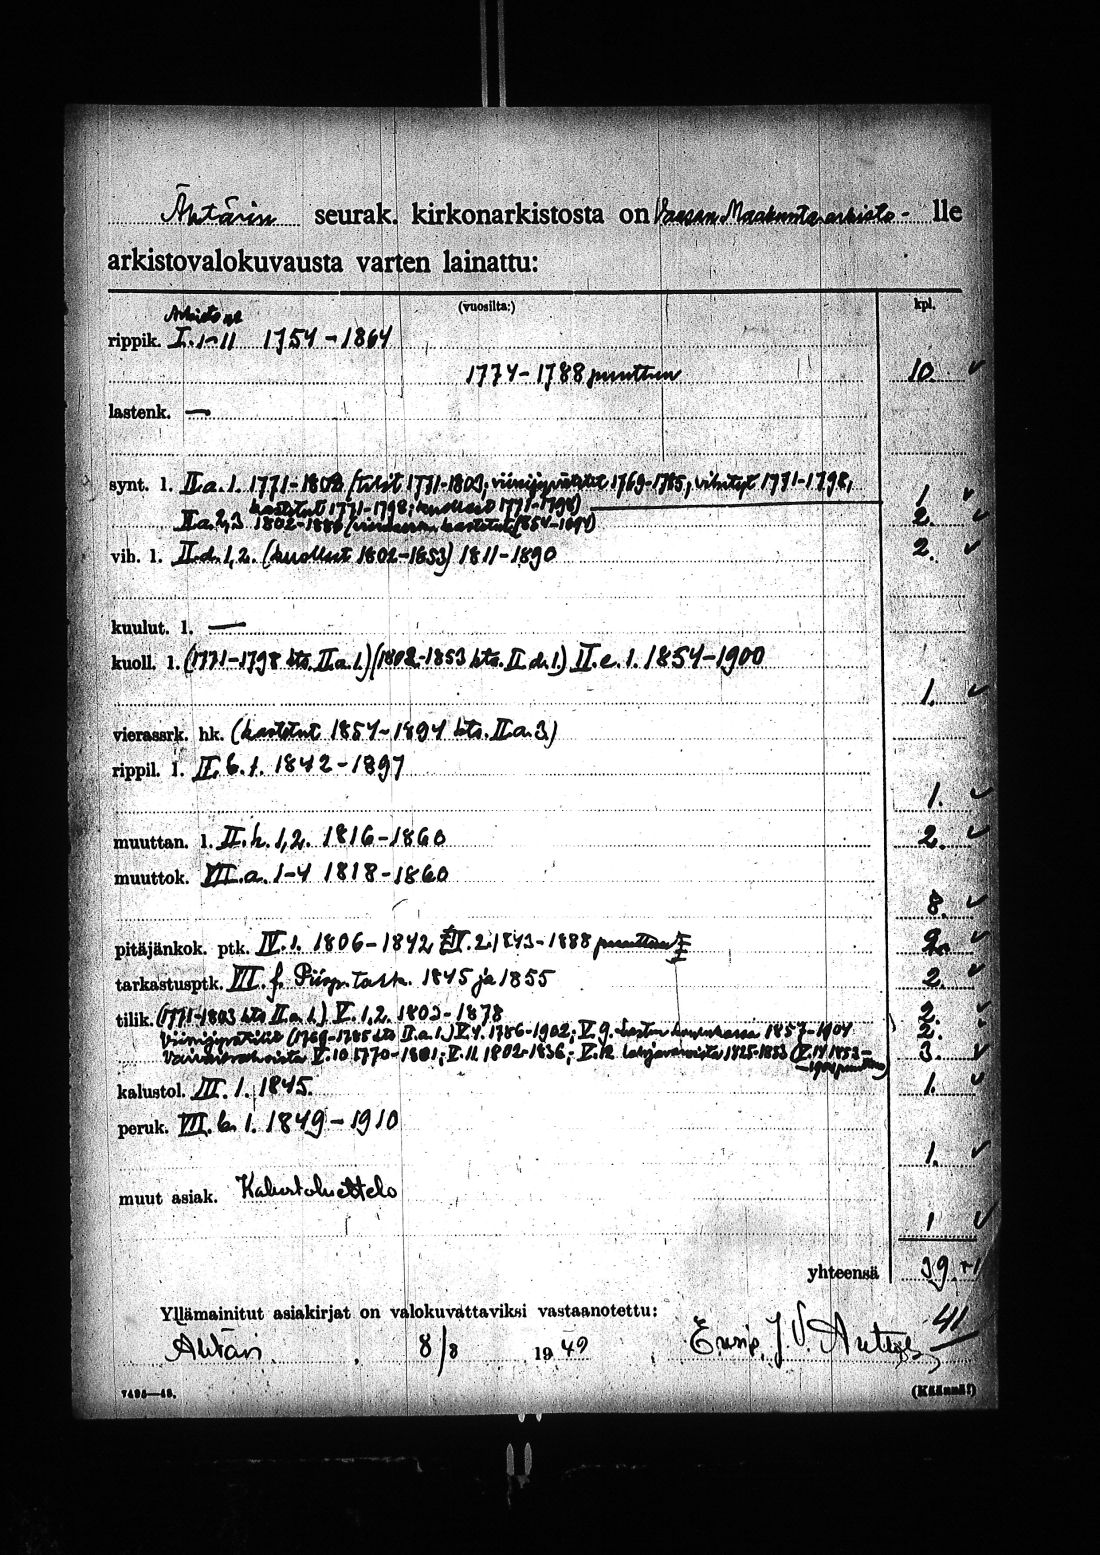 Ähtärin seurak. kirkonarkistosta on Vaasan Maakunta-arkisto - lle
arkistovalokuvausta varten lainattu:
(vuosilta:) kpl.
rippik. I. 1-11 1754-1864
1774-1788 puuttuu 10. ✓
lastenk. —
synt. l. II.a.1. 1771-1802 (tilit 1771-1803; viinijyvätilit 1769-1785, vihityt 1771-1798,
kastetut 1771-1798; kuolleet 1771-1798) 1. ✓
II a 2,3 1802-1886 (vierassrk. kastetut 1854-1894) 2. ✓
vih. l. II.d. 1,2. (kuolleet 1802-1853) 1811-1890 2. ✓
kuulut. l. —
kuoll. l. (1771-1798 kts. II.a.1.) (1802-1853 kts. II.d.1.) II.e.1. 1854-1900
1. ✓
vierassrk. hk. (kastetut 1854-1894 kts. II.a.3)
rippil. l. II.b.1. 1842-1897
1. ✓
muuttan. l. II.h. 1,2. 1816-1860 2. ✓
muuttok. VII.a. 1-4 1818-1860
8. ✓
pitäjänkok. ptk. IV.1. 1806-1842 IV.2. 1843-1888 puuttuu 2. ✓
tarkastusptk. III.f. Piisp. tark. 1845 ja 1855 2. ✓
tilik. (1771-1803 kts II.a.1.) V.1,2. 1803-1878 2. ✓
Viinijyvätilit (1769-1785 kts II.a.1.) V.4. 1786-1902; V.9. 1857-1904 2. ✓
V.10 1770-1801; V.11 1802-1836; V.12 1825-1853 (V.14 1853- 3. ✓
kalustol. III.1. 1845. 1. ✓
peruk. VII.b.1. 1849-1910
1. ✓
muut asiak. Kalustoluettelo
1 ✓
yhteensä 39.+1
41
Yllämainitut asiakirjat on valokuvattaviksi vastaanotettu:
Ähtäri 8/8 1949 J.V.
7498—48. (Käännä!)